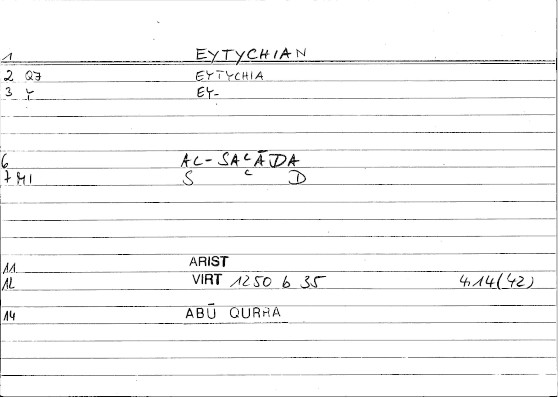 1 EYTYCHIAN
2 Q7 EYTYCHIA
3 Y EY-
6 AL-SAᶜĀDA
7 MI S ᶜ D
11 ARIST
12 VIRT 1250 b 35 4.14(42)
14 ABŪ QURRA